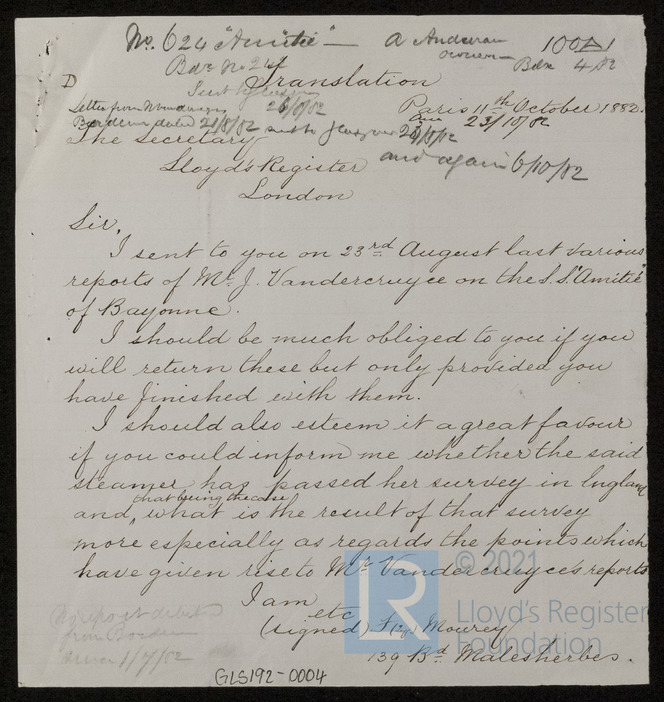 No. 624 "Amitié" — A Anderson 100A1
owners Bdx 4/82
Bdx No 24
D Translation
Sent Glasgow
Letter from Vandercruyce 26/8/82 Paris 11th October 1882.
Bordeaux dated 21/8/82 sent to Glasgow 26/8/82 ans 23/10/82
The Secretary
Lloyd's Register and again 6/10/82
London
Sir,
I sent to you on 23rd August last various
reports of Mr. J. Vandercruyce on the S.S. "Amitié"
of Bayonne.
I should be much obliged to you if you
will return these but only provided you
have finished with them.
I should also esteem it a great favour
if you could inform me whether the said
steamer has passed her survey in England
and, that being the case, what is the result of that survey
more especially as regards the points which
have given rise to Mr Vandercruyce's reports
I am
etc
(signed) Mourey
139 Bd Malesherbes.
No report
from Bordeaux
since 1/7/82
GLS192-0004
LR
© 2021
Lloyd's Register
Foundation